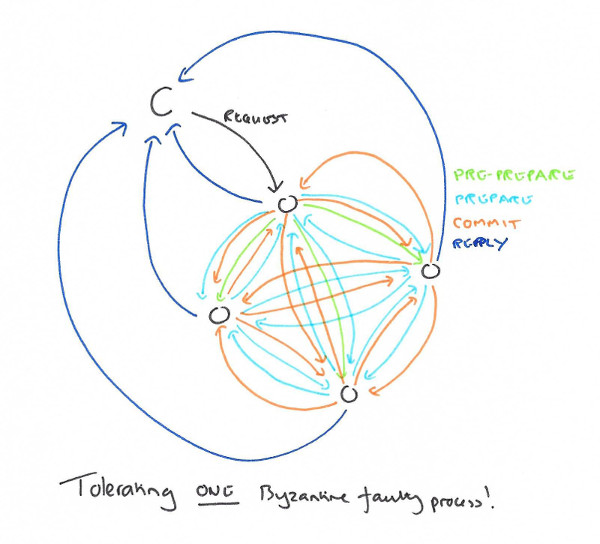 C
REQUEST
PRE-PREPARE
PREPARE
COMMIT
REPLY
Tolerating ONE Byzantine faulty process!